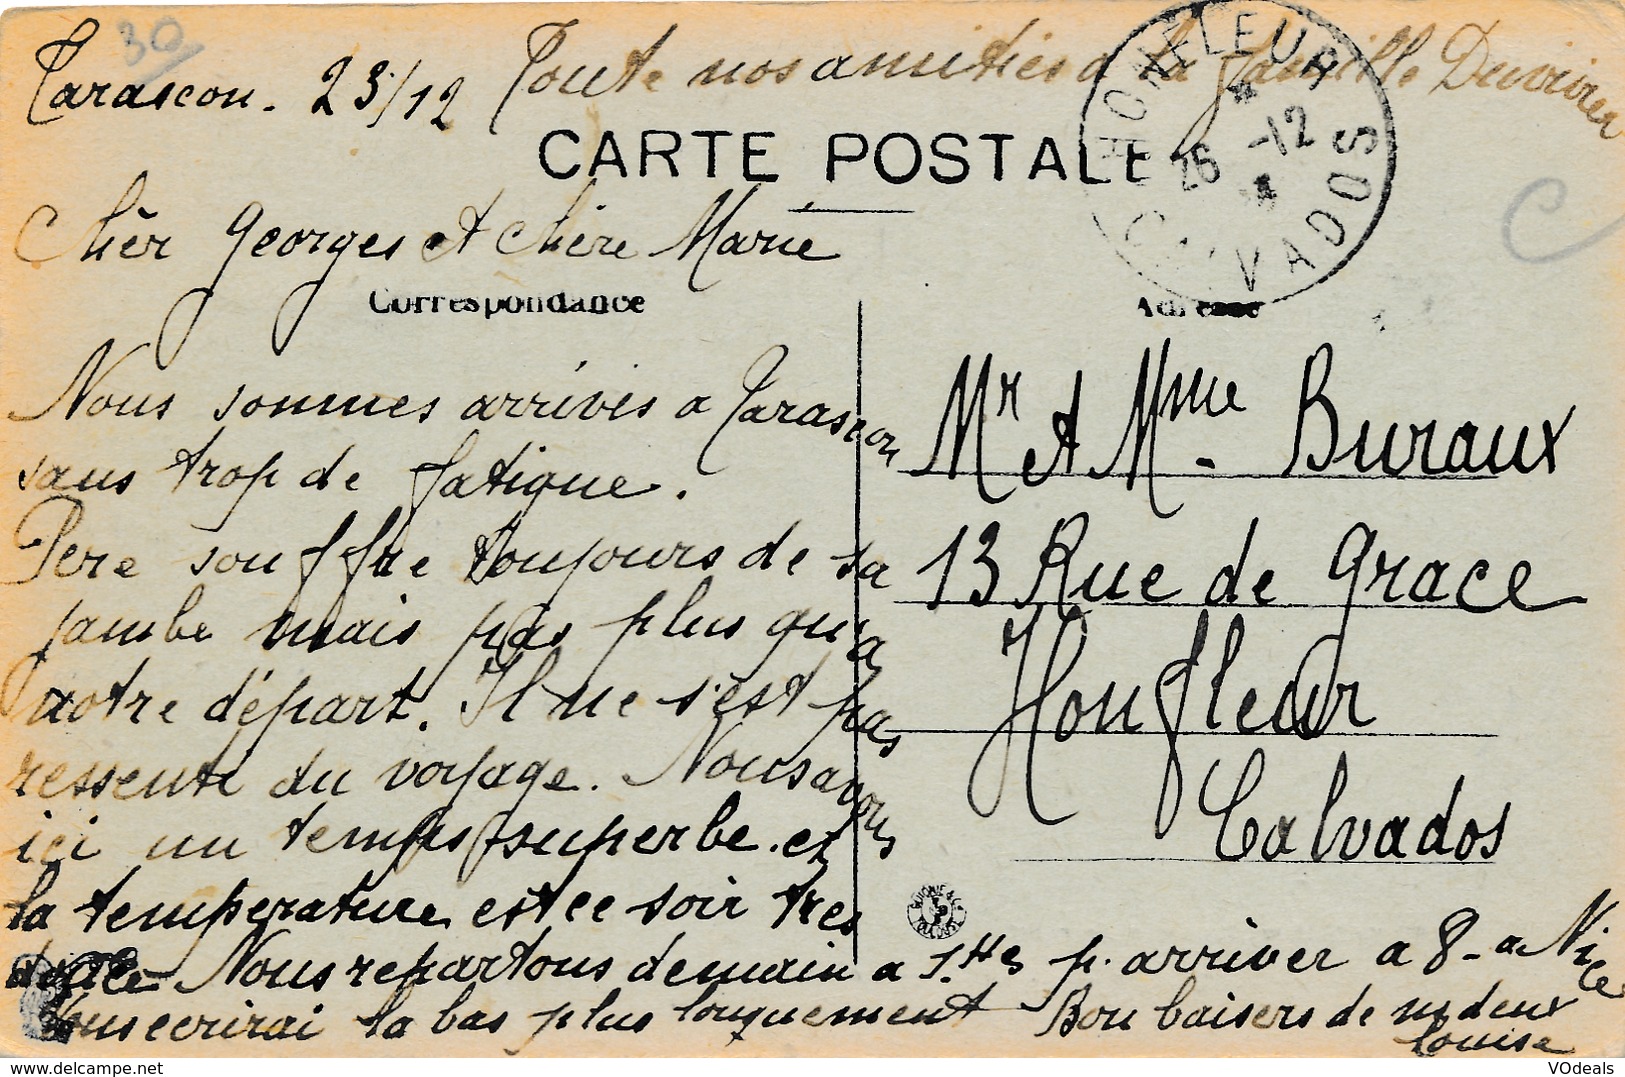 30
Tarascon. 23/12 Toute nos amities a la famille Duvivier
CARTE POSTALE
HONFLEUR
26 -12
CALVADOS
C
Chèr Georges et chère Marie
Correspondance
Adresse
Nous sommes arrivés a Tarascon
sans trop de fatigue.
Pere souffre toujours de sa
jambe mais pas plus qu'a
notre départ. Il ne s'est pas
ressenti du voyage. Nous avons
ici un temps superbe. et
la temperature est ce soir tres
douce Nous repartons demain a 1.H p. arriver a 8 - a Nice
Vous ecrirai la bas plus longuement Bon baisers de n. deux
Louise
Mr et Mme. Buraux
13 Rue de Grace
Honfleur
Calvados
www.delcampe.net
VOdeals